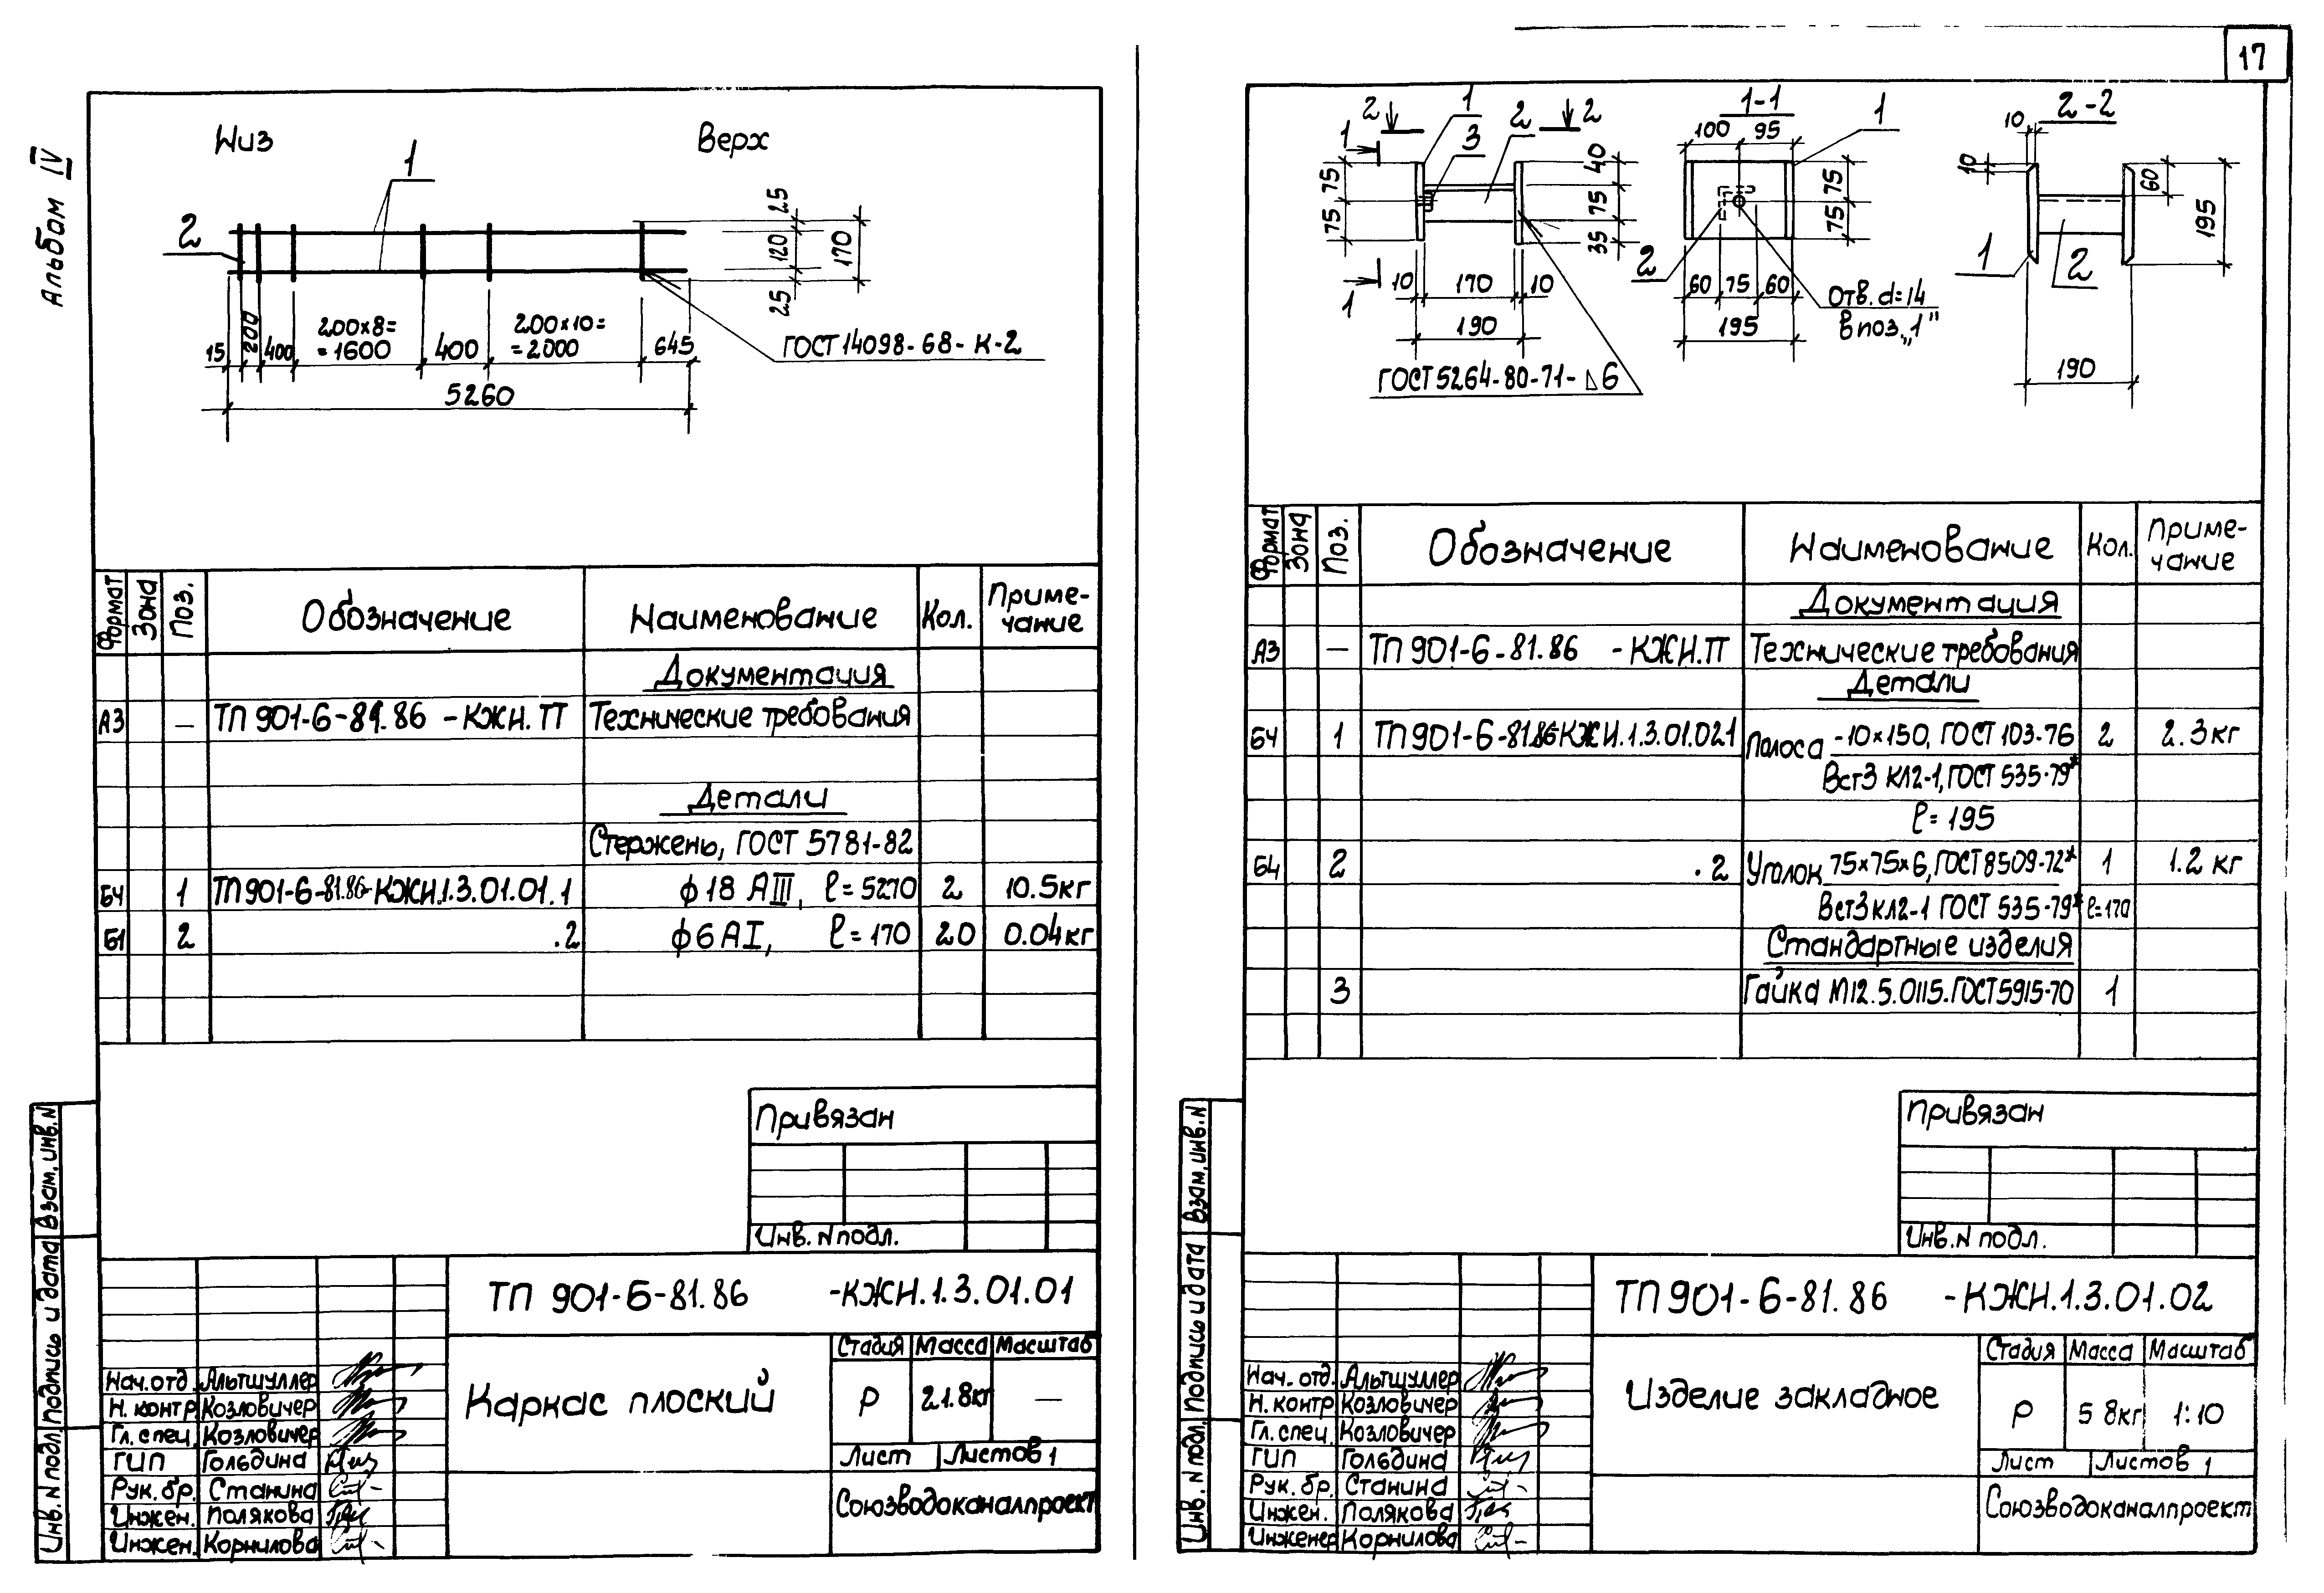 17
Альбом IV
Низ
Верх
1
2
25
120
25
170
15
200
400
200×8=
=1600
400
200×10=
=2000
645
5260
ГОСТ 14098-68-К-2
Формат Зона Поз. Обозначение Наименование Кол. Приме-
чание
Документация
А3 — ТП 901-6-81.86 -КЖН.ТТ Технические требования
Детали
Стержень, ГОСТ 5781-82
БЧ 1 ТП 901-6-81.86-КЖН.1.3.01.01.1 ϕ18 АIII, ℓ=5270 2 10.5кг
Б1 2 .2 ϕ6АI, ℓ=170 20 0.04кг
Привязан
Инв.N подл.
Взам.инв.N
Подпись и дата
Инв.N подл.
ТП 901-6-81.86 -КЖН.1.3.01.01
Каркас плоский
Стадия Масса Масштаб
Р 21.8кг —
Лист Листов 1
Союзводоканалпроект
Нач.отд. Альтшуллер
Н.контр Козловичер
Гл.спец. Козловичер
ГИП Гольдина
Рук.бр. Станина
Инжен. Полякова
Инжен. Корнилова
2 2
1
1
1
3
2
75
75
40
75
35
10 170 10
190
ГОСТ 5264-80-Т1-⊿6
1-1
100 95
1
75
75
2
60 75 60
195
Отв. d=14
в поз. „1”
2-2
10
10
60
195
1
2
190
Формат Зона Поз. Обозначение Наименование Кол. Приме-
чание
Документация
А3 — ТП 901-6-81.86 -КЖН.ТТ Технические требования
Детали
БЧ 1 ТП 901-6-81.86-КЖН.1.3.01.02.1 Полоса -10×150, ГОСТ 103-76 2 2.3кг
Вст3 кл2-1, ГОСТ 535-79*
ℓ=195
БЧ 2 .2 Уголок 75×75×6, ГОСТ 8509-72* 1 1.2 кг
Вст3кл2-1 ГОСТ 535-79* ℓ=170
Стандартные изделия
3 Гайка М12.5.0115.ГОСТ5915-70 1
Привязан
Инв.N подл.
Взам.инв.N
Подпись и дата
Инв.N подл.
ТП 901-6-81.86 -КЖН.1.3.01.02
Изделие закладное
Стадия Масса Масштаб
Р 5 8кг 1:10
Лист Листов 1
Союзводоканалпроект
Нач.отд. Альтшуллер
Н.контр Козловичер
Гл.спец. Козловичер
ГИП Гольдина
Рук.бр. Станина
Инжен. Полякова
Инженер Корнилова